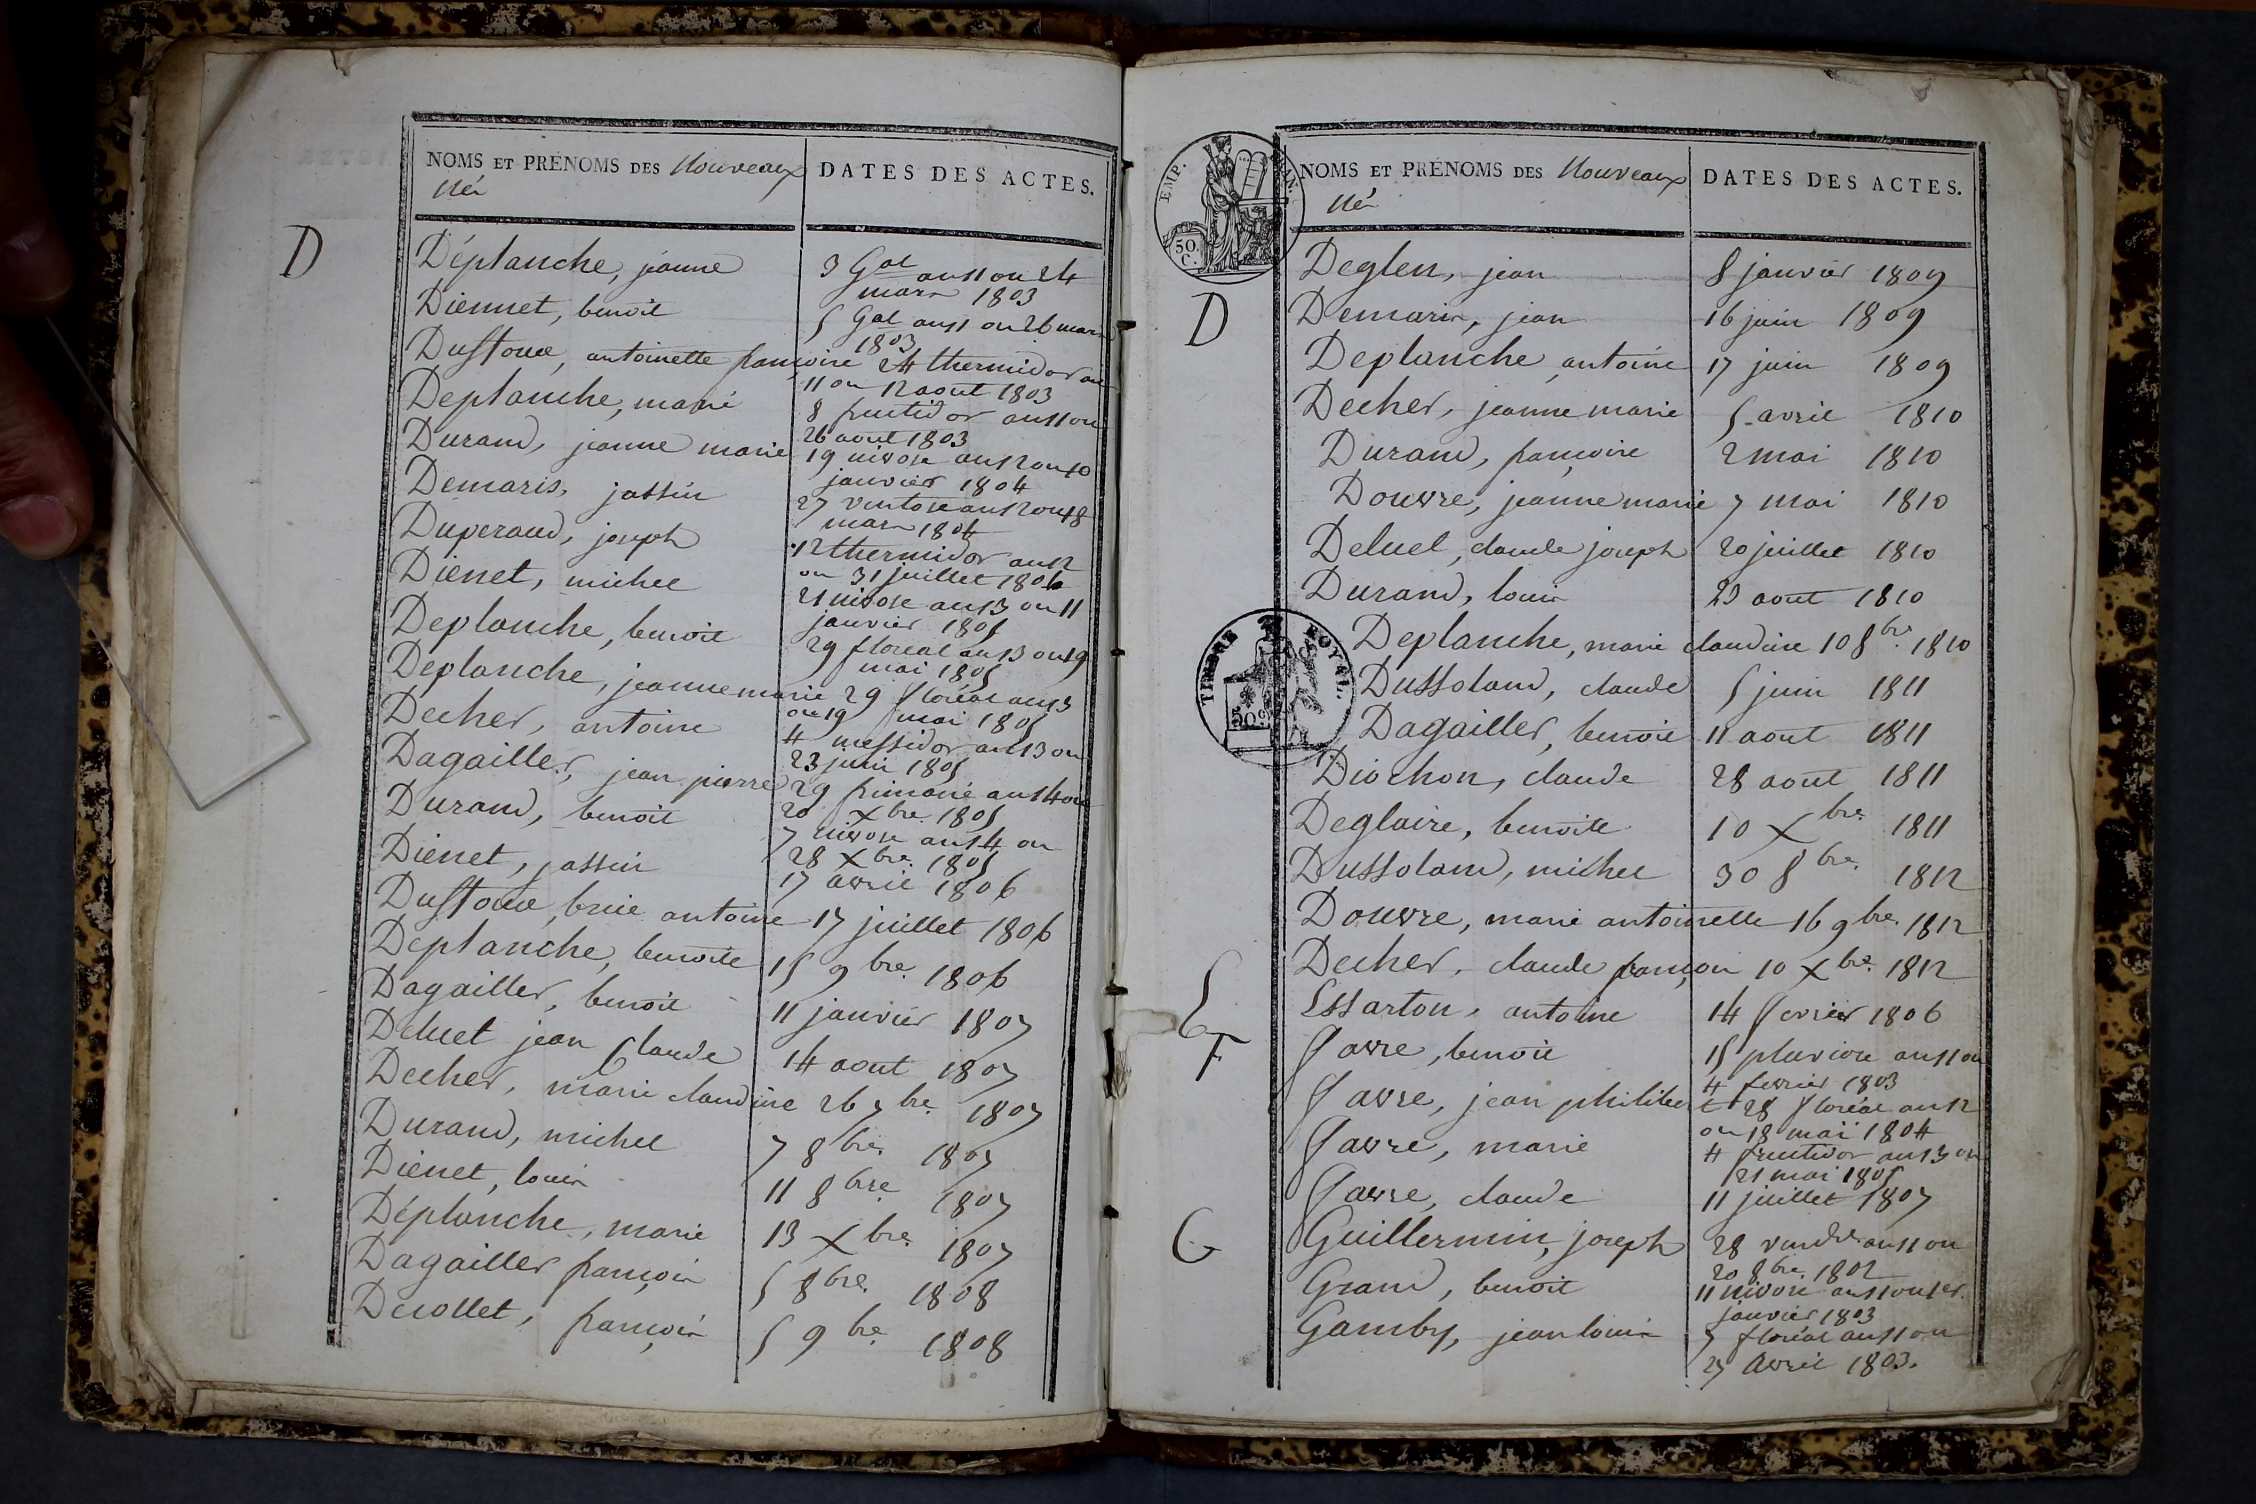 NOMS ET PRÉNOMS DES Nouveaux
Nés
DATES DES ACTES.
D
Déplanche, jeanne 3 Gal an 11 ou 24
mars 1803
Diennet, benoit 5 Gal an 11 ou 26 mars
1803
Dustoue, antoinette françoise 24 thermidor an
11 ou 12 aout 1803
Deplanche, marie 8 fructidor an 11 ou
26 aout 1803
Durand, jeanne marie 19 nivose an 12 ou 10
janvier 1804
Demaris, jossin 27 ventose an 12 ou 18
mars 1804
Duperand, joseph 12 thermidor an 12
ou 31 juillet 1804
Dienet, michel 21 nivose an 13 ou 11
janvier 1805
Deplanche, benoit 29 floréal an 13 ou 19
mai 1805
Deplanche, jeanne marie 29 floréal an 13
ou 19 mai 1805
Decher, antoine 4 messidor an 13 ou
23 juin 1805
Dagailler, jean pierre 29 frimaire an 14 ou
20 Xbre 1805
Durand, benoit 7 nivose an 14 ou
28 Xbre 1805
Dienet, jossin 17 avril 1806
Dustoue, brice antoine 17 juillet 1806
Deplanche, benoite 15 9bre 1806
Dagailler, benoit 11 janvier 1807
Deluel jean Claude 14 aout 1807
Decher, marie claudine 26 7bre 1807
Durand, michel 7 8bre 1807
Dienet, louis 11 8bre 1807
Déplanche, marie 13 Xbre 1807
Dagailler françois 5 8bre 1808
Derollet, françois 5 9bre 1808
EMP. FRAN.
50 C.
NOMS ET PRÉNOMS DES Nouveaux
Nés
DATES DES ACTES.
D
Deglen, jean 8 janvier 1809
Demaris, jean 16 juin 1809
Deplanche antoine 17 juin 1809
Decher, jeanne marie 5 avril 1810
Durand, françoise 2 mai 1810
Douvre, jeanne marie 7 mai 1810
Deluel, claude joseph 20 juillet 1810
Durand, louis 23 aout 1810
TIMBRE ROYAL.
50 c
Deplanche, marie claudine 10 8bre 1810
Dussoland, claude 5 juin 1811
Dagailler, benoit 11 aout 1811
Diochon, claude 28 aout 1811
Deglaire, benoite 10 Xbre 1811
Dussoland, michel 30 8bre 1812
Douvre, marie antoinette 16 9bre 1812
Decher, claude françois 10 Xbre 1812
E
Essarton, antoine 14 fevrier 1806
F
favre, benoit 15 pluviose an 11 ou
4 fevrier 1803
favre, jean philibert 28 floréal an 12
ou 18 mai 1804
favre, marie 4 fructidor an 13 ou
21 mai 1805
favre, claude 11 juillet 1807
G
Guillermin, joseph 28 vendre an 11 ou
20 8bre 1802
Grand, benoit 11 nivose an 11 ou 1er
janvier 1803
Gamby, jean louis 7 floréal an 11 ou
27 Avril 1803.